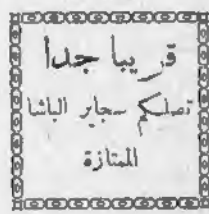 قريبا جدا
تصلكم سجاير الباشا
الممتازة